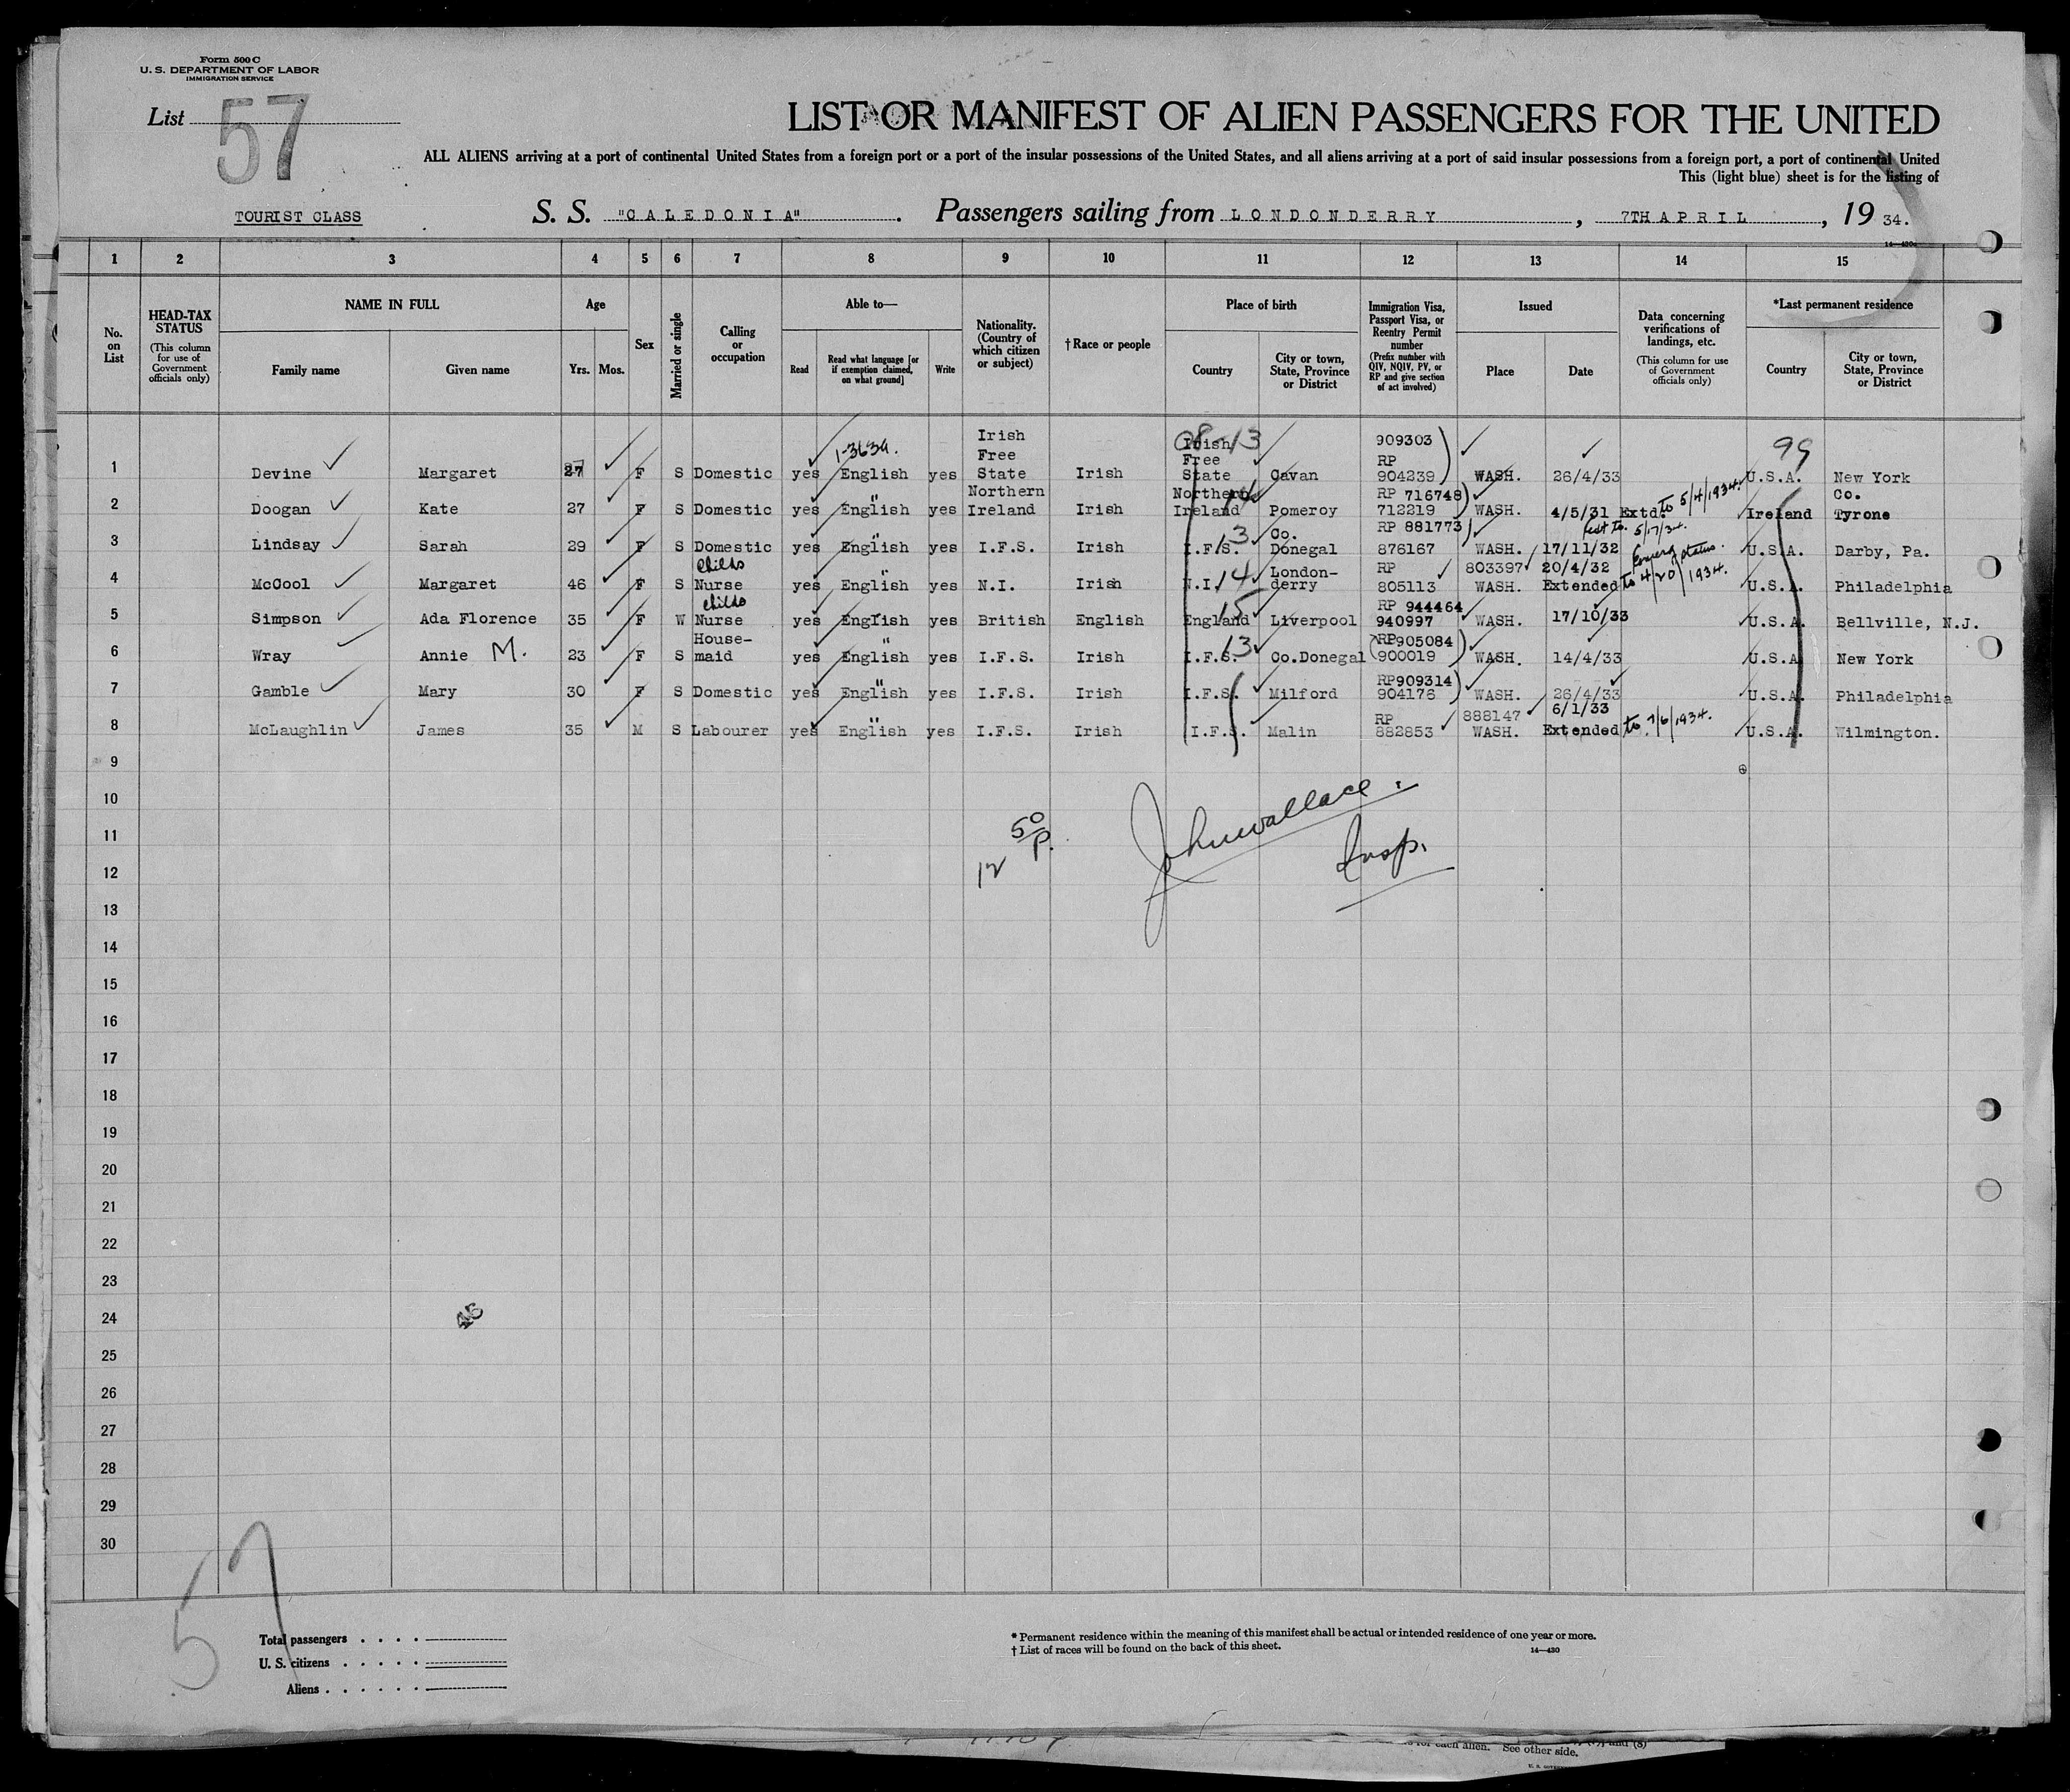 Form 500 C
U. S. DEPARTMENT OF LABOR
IMMIGRATION SERVICE
List 57
LIST OR MANIFEST OF ALIEN PASSENGERS FOR THE UNITED
ALL ALIENS arriving at a port of continental United States from a foreign port or a port of the insular possessions of the United States, and all aliens arriving at a port of said insular possessions from a foreign port, a port of continental United
This (light blue) sheet is for the listing of
TOURIST CLASS S. S. "CALEDONIA" . Passengers sailing from LONDONDERRY , 7TH APRIL , 19 34.
14—430
1 2 3 4 5 6 7 8 9 10 11 12 13 14 15
No. on List
HEAD-TAX STATUS (This column for use of Government officials only)
NAME IN FULL Family name Given name
Age Yrs. Mos.
Sex
Married or single
Calling or occupation
Able to— Read Read what language [or if exemption claimed, on what ground] Write
Nationality. (Country of which citizen or subject)
†Race or people
Place of birth Country City or town, State, Province or District
Immigration Visa, Passport Visa, or Reentry Permit number (Prefix number with QIV, NQIV, PV, or RP and give section of act involved)
Issued Place Date
Data concerning verifications of landings, etc. (This column for use of Government officials only)
*Last permanent residence Country City or town, State, Province or District
1 Devine Margaret 27 F S Domestic yes 1-3634. English yes Irish Free State Irish Irish Free State 13 Cavan 909303 RP 904239 WASH. 26/4/33 99 U.S.A. New York
2 Doogan Kate 27 F S Domestic yes English " yes Northern Ireland Irish Northern Ireland 14 Pomeroy RP 716748 712219 WASH. 4/5/31 Extd. to 5/4/1934. Ireland Co. Tyrone
3 Lindsay Sarah 29 F S Domestic yes English " yes I.F.S. Irish I.F.S. 13 Co. Donegal RP 881773 876167 WASH. 17/11/32 ext to 5/17/34. U.S.A. Darby, Pa.
4 McCool Margaret 46 F S Childs Nurse yes English " yes N.I. Irish N.I. 14 London-derry RP 805113 803397 WASH. 20/4/32 Extended to 4/20/1934. status. U.S.A. Philadelphia
5 Simpson Ada Florence 35 F W Childs Nurse yes English yes British English England 15 Liverpool RP 944464 940997 WASH. 17/10/33 U.S.A. Bellville, N.J.
6 Wray Annie M. 23 F S House-maid yes English " yes I.F.S. Irish I.F.S. 13 Co.Donegal RP905084 900019 WASH. 14/4/33 U.S.A New York
7 Gamble Mary 30 F S Domestic yes English " yes I.F.S. Irish I.F.S. Milford RP909314 904176 WASH. 26/4/33 U.S.A. Philadelphia
8 McLaughlin James 35 M S Labourer yes English " yes I.F.S. Irish I.F.S. Malin RP 882853 888147 WASH. 6/1/33 Extended to 7/6/1934. U.S.A. Wilmington.
9
10
11
12
50
P.
12
John Wallace.
Insp.
13
14
15
16
17
18
19
20
21
22
23
24
25
26
27
28
29
30
57
Total passengers
U. S. citizens
Aliens
* Permanent residence within the meaning of this manifest shall be actual or intended residence of one year or more.
† List of races will be found on the back of this sheet.
14—430
for each alien. See other side.